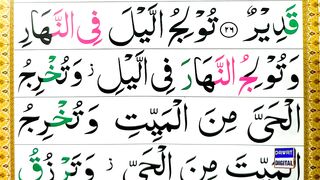 قَدِيْرٌ ﴿۲۶﴾ تُوْلِجُ الَّيْلَ فِى النَّهَارِ
وَتُوْلِجُ النَّهَارَ فِى الَّيْلِ ز وَتُخْرِجُ
الْحَىَّ مِنَ الْمَيِّتِ وَتُخْرِجُ
الْمَيِّتَ مِنَ الْحَىِّ ز وَتَرْزُقُ
DIGITAL